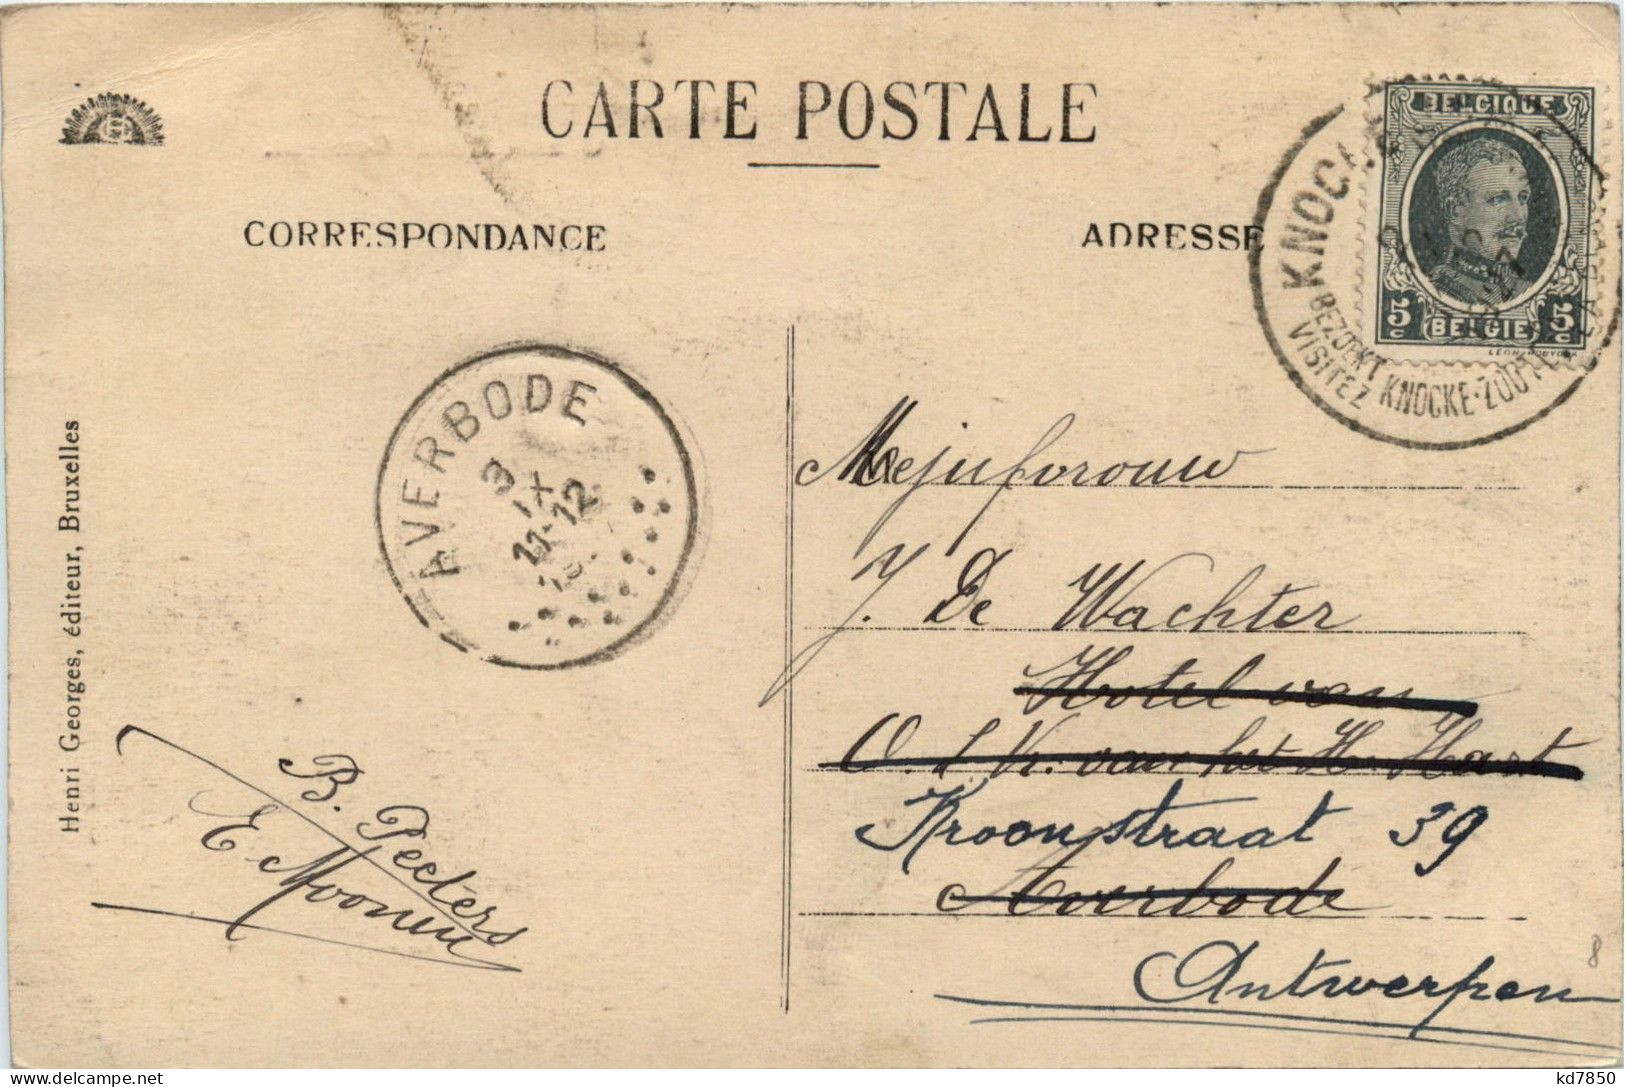 CARTE POSTALE
CORRESPONDANCE
ADRESSE
BELGIQUE
5c BELGIË 5c
KNOCKE
BEZOEKT
VISITEZ KNOCKE-ZOUTE
AVERBODE
3
IX
11-12
Henri Georges, éditeur, Bruxelles
Mejuforouw
J. De Wachter
Hotel van
O. L. Vr. van het H. Hart
Kroonstraat 39
Averbode
Antwerpen
B. Peeters
E. Moonen
8
kd7850